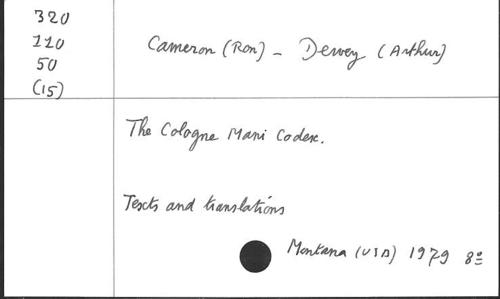 320
110
50
(15)
Cameron (Ron) - Dewey (Arthur)
The Cologne Mani Codex.
Texts and translations
Montana (USA) 1979 8º